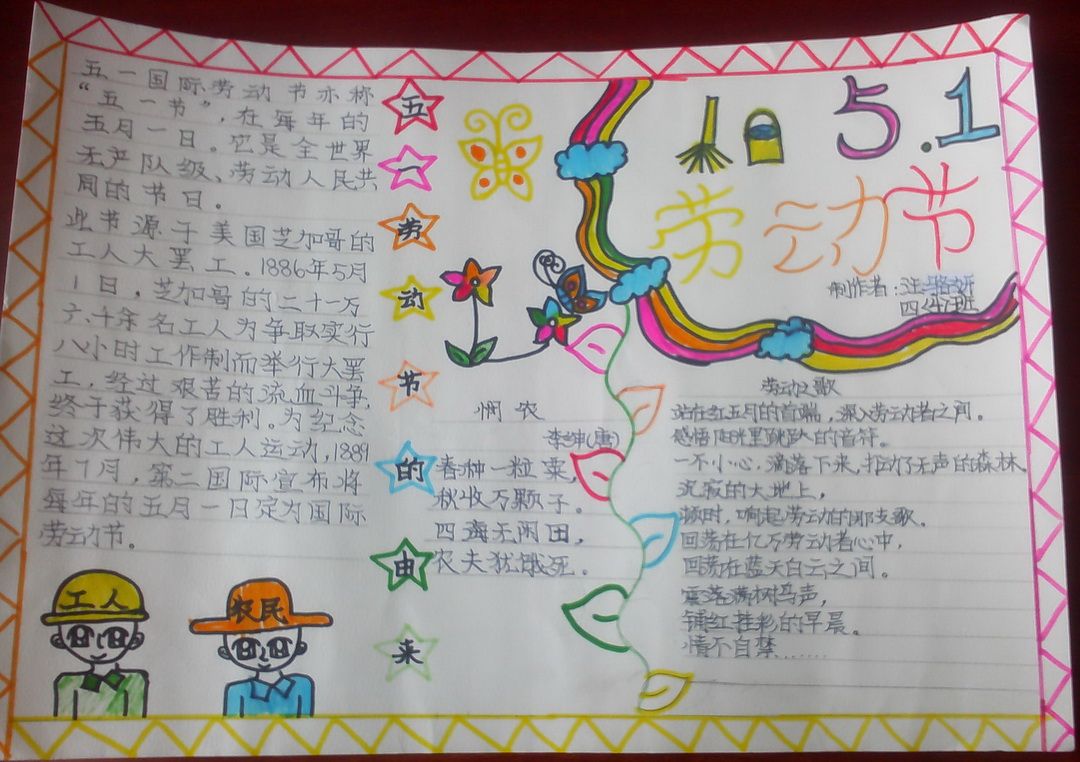 五一国际劳动节亦称
“五一节”，在每年的
五月一日。它是全世界
无产队级、劳动人民共
同的节日。
此节源于美国芝加哥的
工人大罢工。1886年5月
1日，芝加哥的二十一万
六千余名工人为争取实行
八小时工作制而举行大罢
工，经过艰苦的流血斗争，
终于获得了胜利。为纪念
这次伟大的工人运动，1889
年7月，第二国际宣布将
每年的五月一日定为国际
劳动节。
工人
农民
五
一
劳
动
节
的
由
来
悯农
李绅(唐)
春种一粒粟，
秋收万颗子。
四海无闲田，
农夫犹饿死。
5.1
劳动节
制作者：汪
四 班
劳动之歌
站在红五月的首端，深入劳动者之间。
感悟阳光里跳跃的音符。
一不小心，滴落下来，打动了无声的森林
沉寂的大地上，
顿时，响起劳动的那支歌。
回荡在亿万劳动者心中，
回荡在蓝天白云之间。
震落满树鸟声，
铺红挂彩的早晨。
情不自禁……